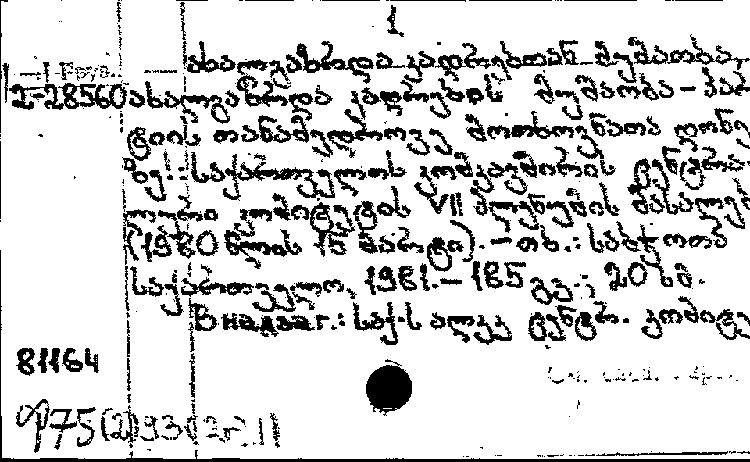 1
ახალგაზრდა კადრებთან მუშაობა,
I-28560 ახალგაზრდა კადრების მუშაობა - პარ
ტიის თანამედროვე მოთხოვნათა დონე
ზე!: საქართველოს კომკავშირის ცენტრა
ლური კომიტეტის VII პლენუმის მასალებ
(1980 წლის 15 მარტი). - თბ.: საბჭოთა
საქართველო, 1981. - 185 გვ.; 20 სმ.
В надзаг.: საქ.სალკკ ცენტრ. კომიტე
81164